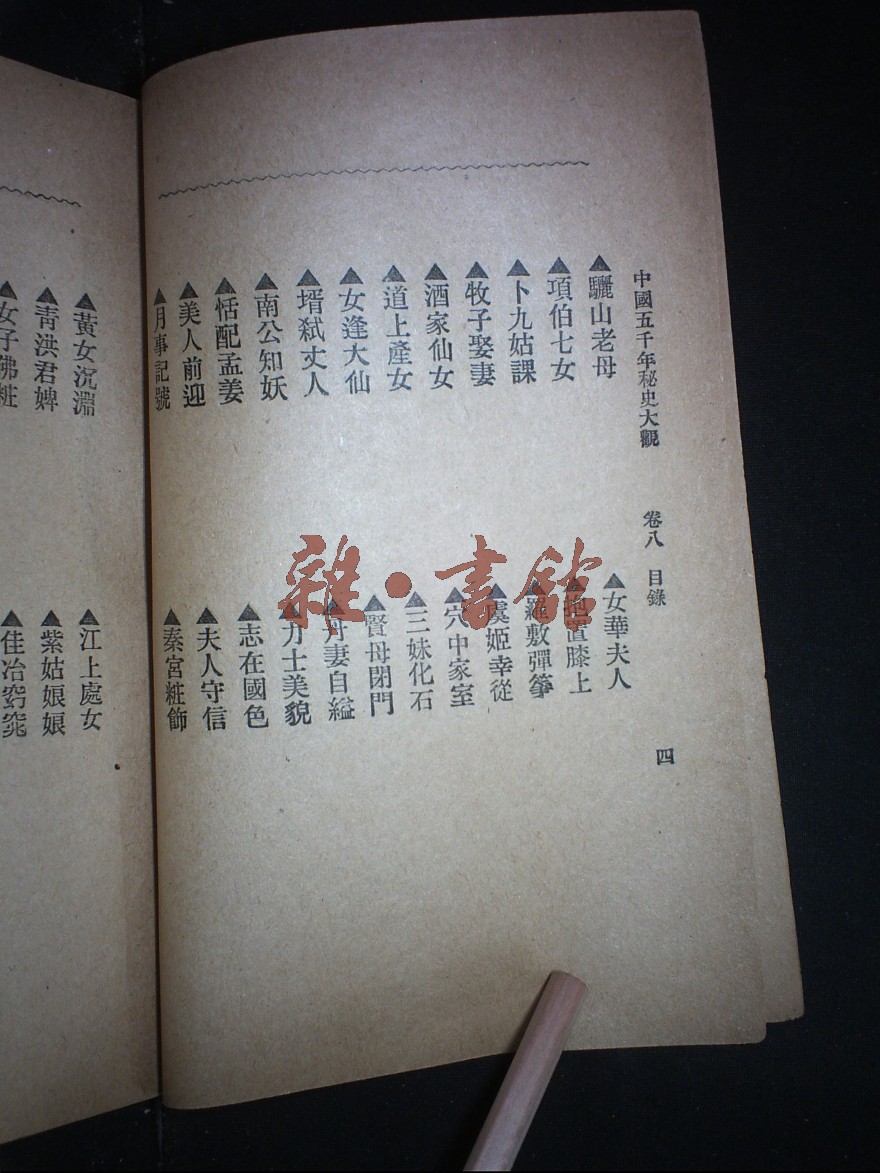 中國五千年秘史大觀 卷八 目錄 四
▲驪山老母 ▲女華夫人
▲項伯七女 ▲抱置膝上
▲卜九姑課 ▲羅敷彈箏
▲牧子娶妻 ▲虞姬幸從
▲酒家仙女 ▲穴中家室
▲道上產女 ▲三妹化石
▲女逢大仙 ▲賢母閉門
▲壻弒丈人 ▲丹妻自縊
▲南公知妖 ▲力士美貌
▲恬配孟姜 ▲志在國色
▲美人前迎 ▲夫人守信
▲月事記號 ▲秦宮粧飾
▲黃女沉淵 ▲江上處女
▲青洪君婢 ▲紫姑娘娘
▲女子拂粧 ▲佳冶窈窕
雜·書館